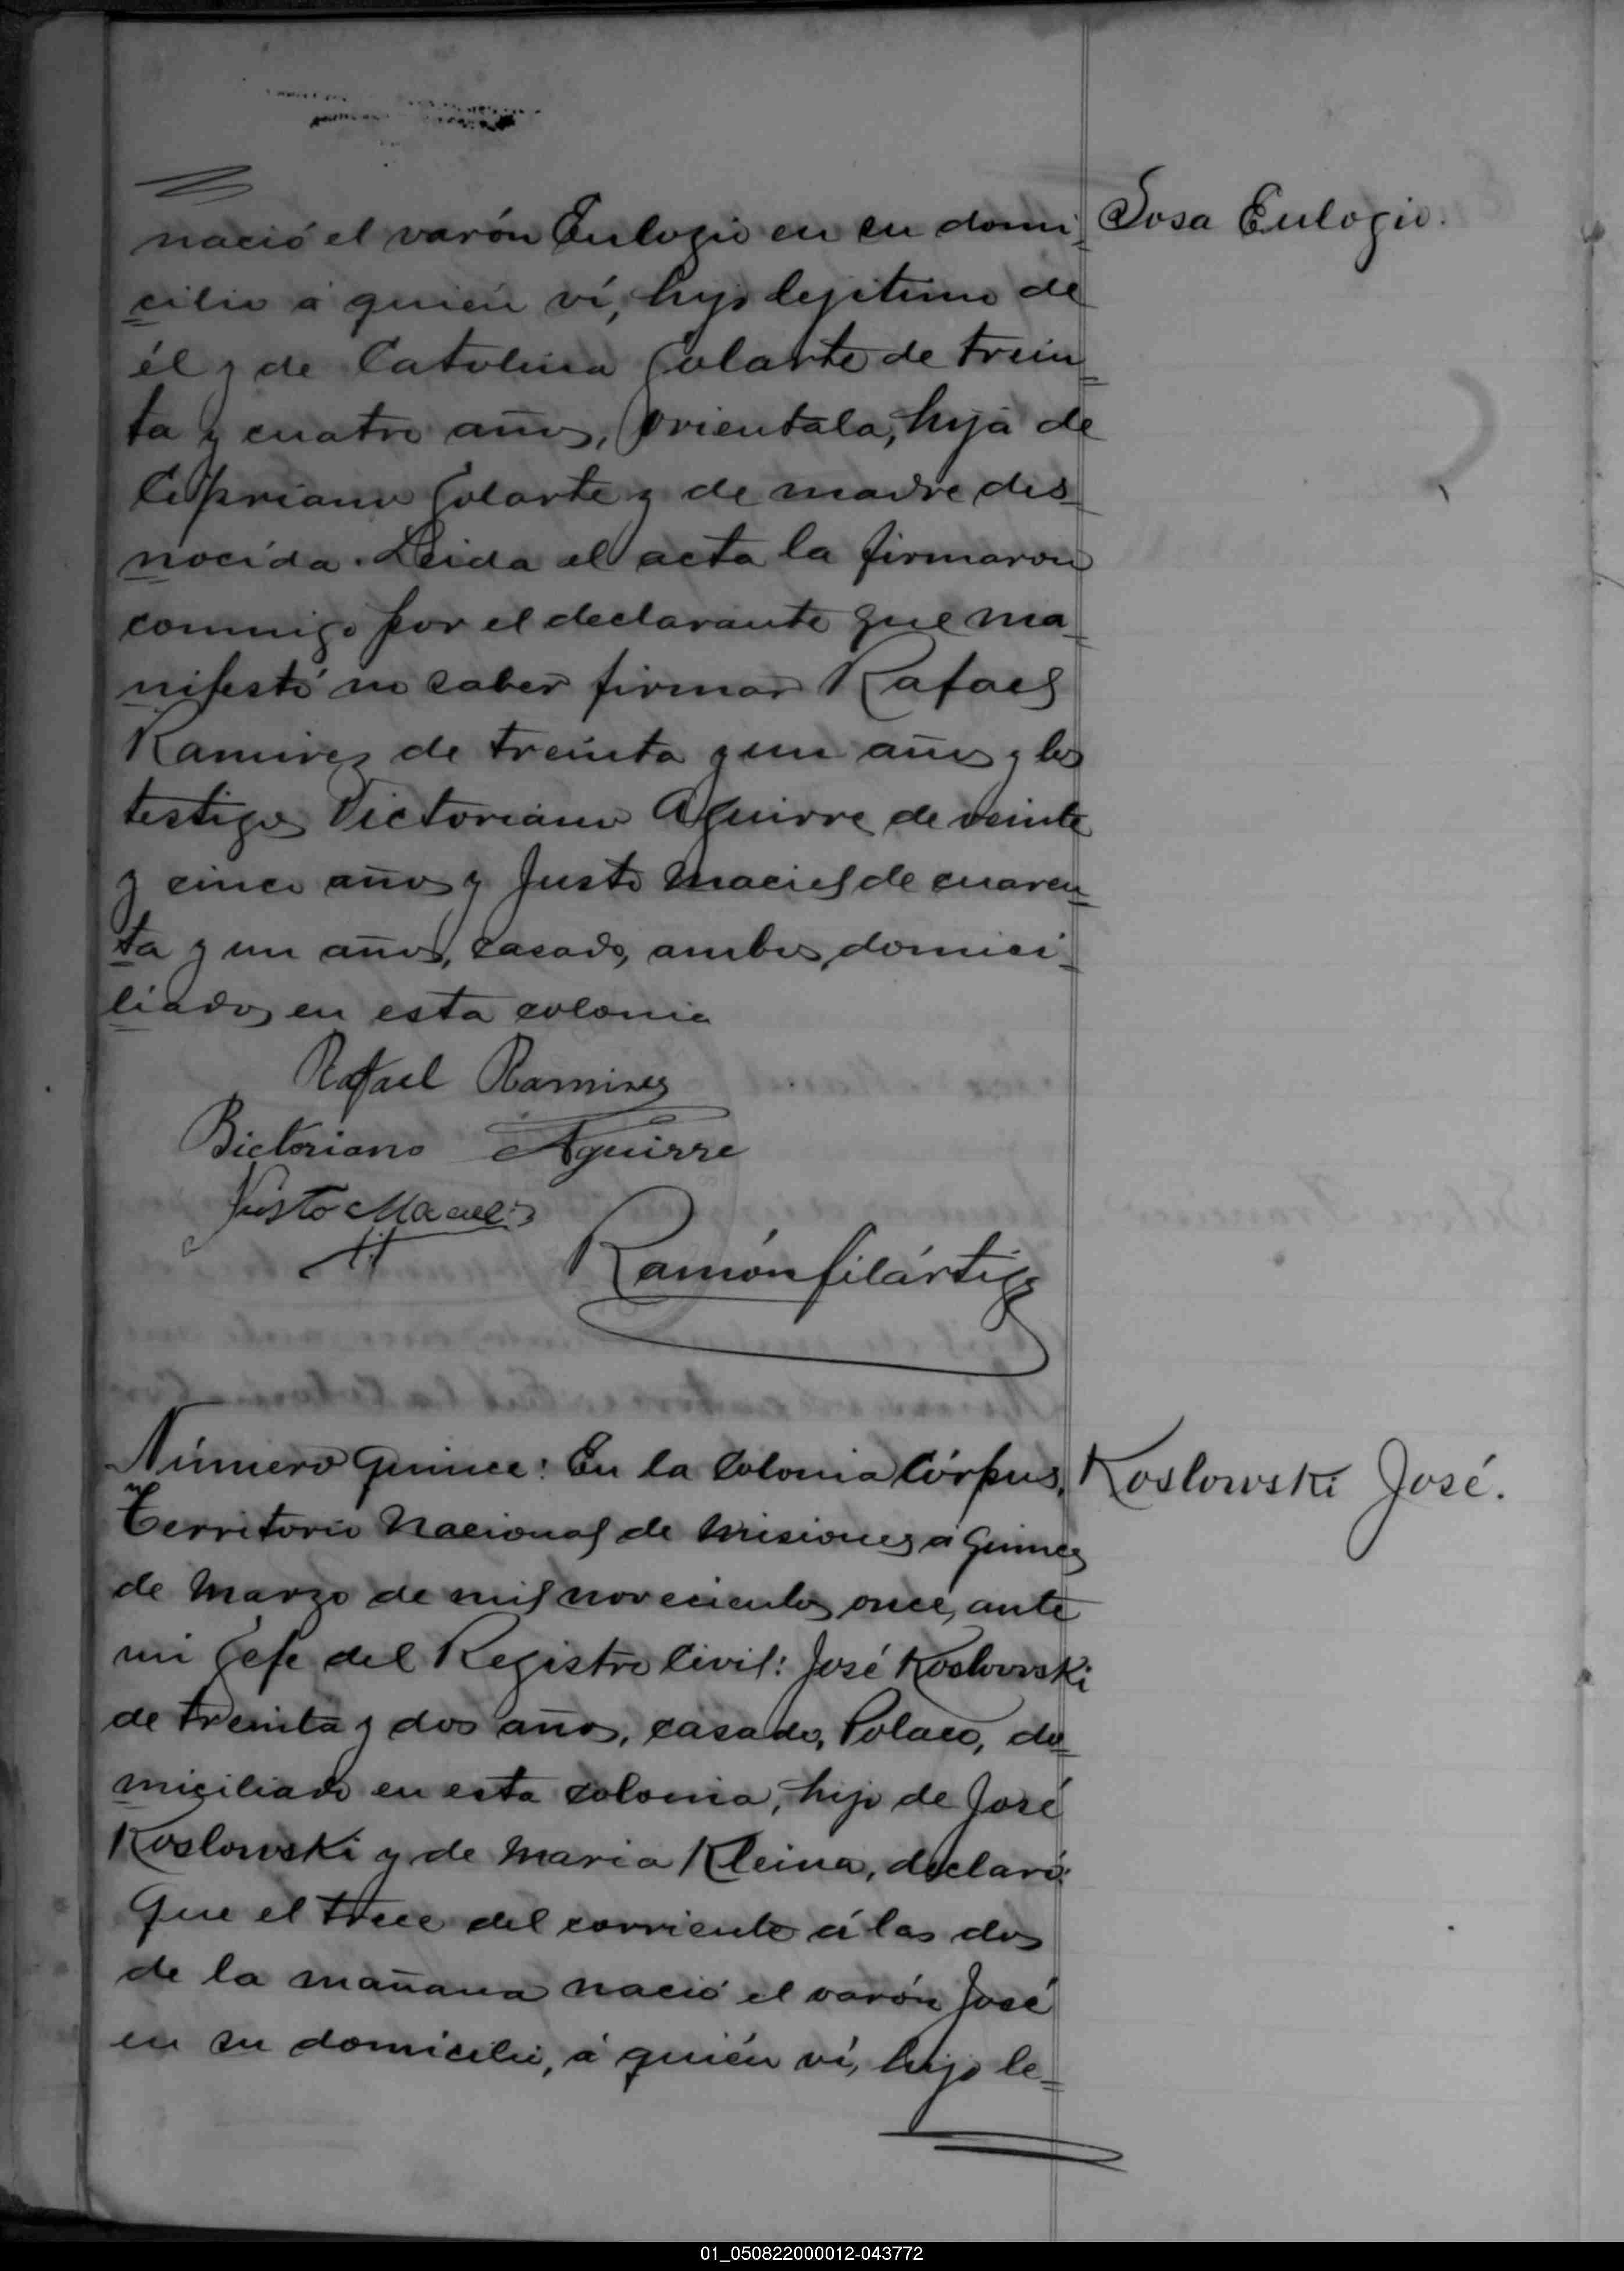 nació el varón Eulogio en su domi= Sosa Eulogio.
cilio á quién ví, hijo lejitimo de
él y de Catolina Golarte de trein=
ta y cuatro años, Orientala, hija de
Cipriano Golarte y de madre des=
nocida. Leida el acta la firmaron
conmigo por el declarante que ma=
nifestó no saber firmar Rafael
Ramirez de treinta y un años y los
testigos Victoriano Aguirre de veinte
y cinco años y Justo Maciel de cuaren=
ta y un años, casado, ambos, domici=
liados en esta colonia
Rafael Ramirez
Bictoriano Aguirre
Justo Maciel
Ramón filártiga
Número quince: En la Colonia Córpus, Koslowski José.
Territorio Nacional de Misiones á quince
de Marzo de mil novecientos once, ante
mi Gefe del Registro Civil: José Koslowski
de treinta y dos años, casado, Polaco, do=
miciliado en esta colonia, hijo de José
Koslowski y de Maria Kleina, declaró:
Que el trece del corriente á las dos
de la mañana nació el varón José
en su domicilio, á quién ví, hijo le=
01_050822000012-043772